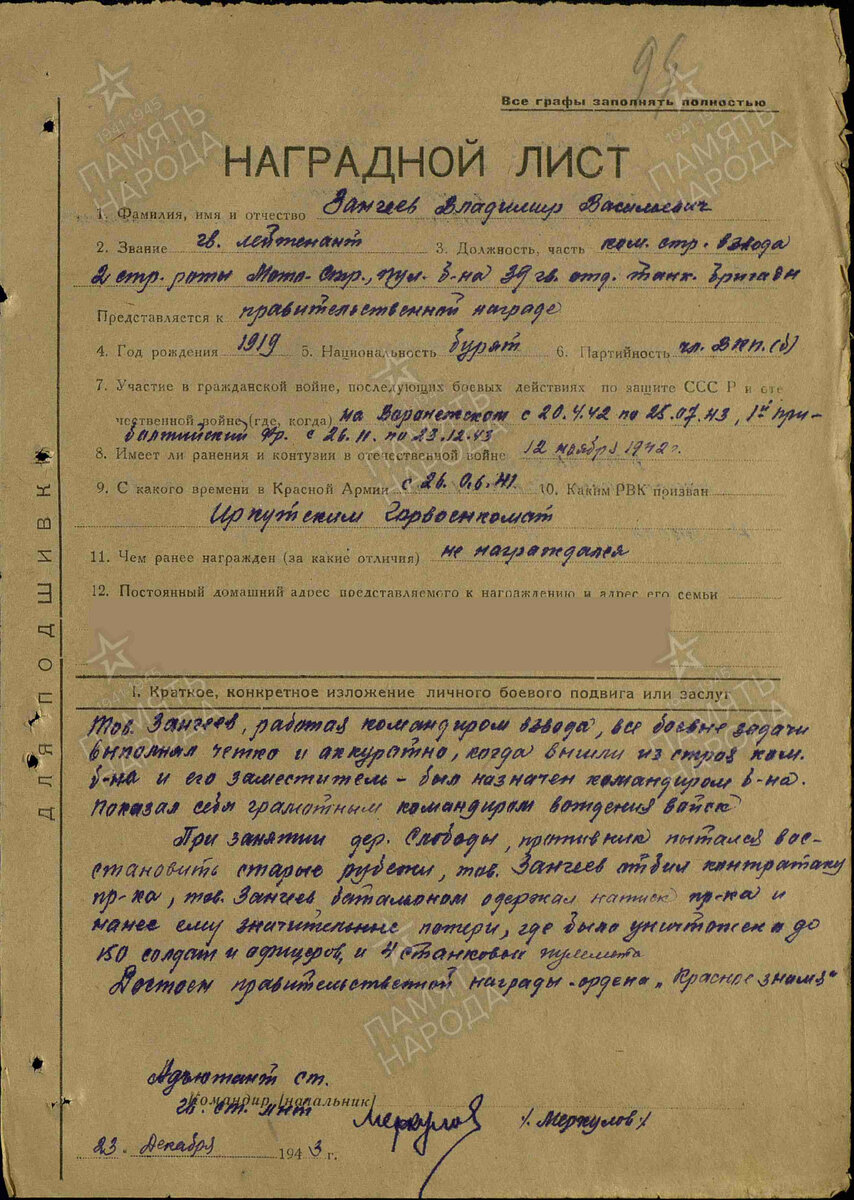 96
Все графы заполнять полностью
НАГРАДНОЙ ЛИСТ
1. Фамилия, имя и отчество Зангеев Владимир Васильевич
2. Звание гв. лейтенант 3. Должность, часть ком. стр. взвода
2 стр. роты Мото-стр., пул. б-на 39 гв. отд. танк. бригады
Представляется к правительственной награде
4. Год рождения 1919 5. Национальность бурят 6. Партийность чл. ВКП(б)
7. Участие в гражданской войне, последующих боевых действиях по защите СССР и оте
чественной войне (где, когда) на Воронежском с 20.4.42 по 25.07.43, 1й при-
балтийский фр. с 26.11 по 23.12.43
8. Имеет ли ранения и контузии в отечественной войне 12 ноября 1942г.
9. С какого времени в Красной Армии с 26.06.41 10. Каким РВК призван
Иркутским Горвоенкомат
11. Чем ранее награжден (за какие отличия) не награждался
12. Постоянный домашний адрес представляемого к награждению и адрес его семьи
ДЛЯ ПОДШИВКИ
I. Краткое, конкретное изложение личного боевого подвига или заслуг
Тов. Зангеев, работая командиром взвода, все боевые задачи
выполнял четко и аккуратно, когда вышли из строя ком.
б-на и его заместитель - был назначен командиром б-на.
Показал себя грамотным командиром вождения войск
При занятии дер. Слободы, противник пытался вос-
становить старые рубежи, тов. Зангеев отбил контратаку
пр-ка, тов. Зангеев батальоном одержал натиск пр-ка и
нанес ему значительные потери, где было уничтожено до
150 солдат и офицеров, и 4 станковых пулемета
Достоен правительственной награды-ордена "Красное знамя"
Адъютант ст.
Командир (начальник)
гв. ст. л-нт Меркулов /Меркулов/
23. Декабря 1943 г.
1941-1945
ПАМЯТЬ
НАРОДА